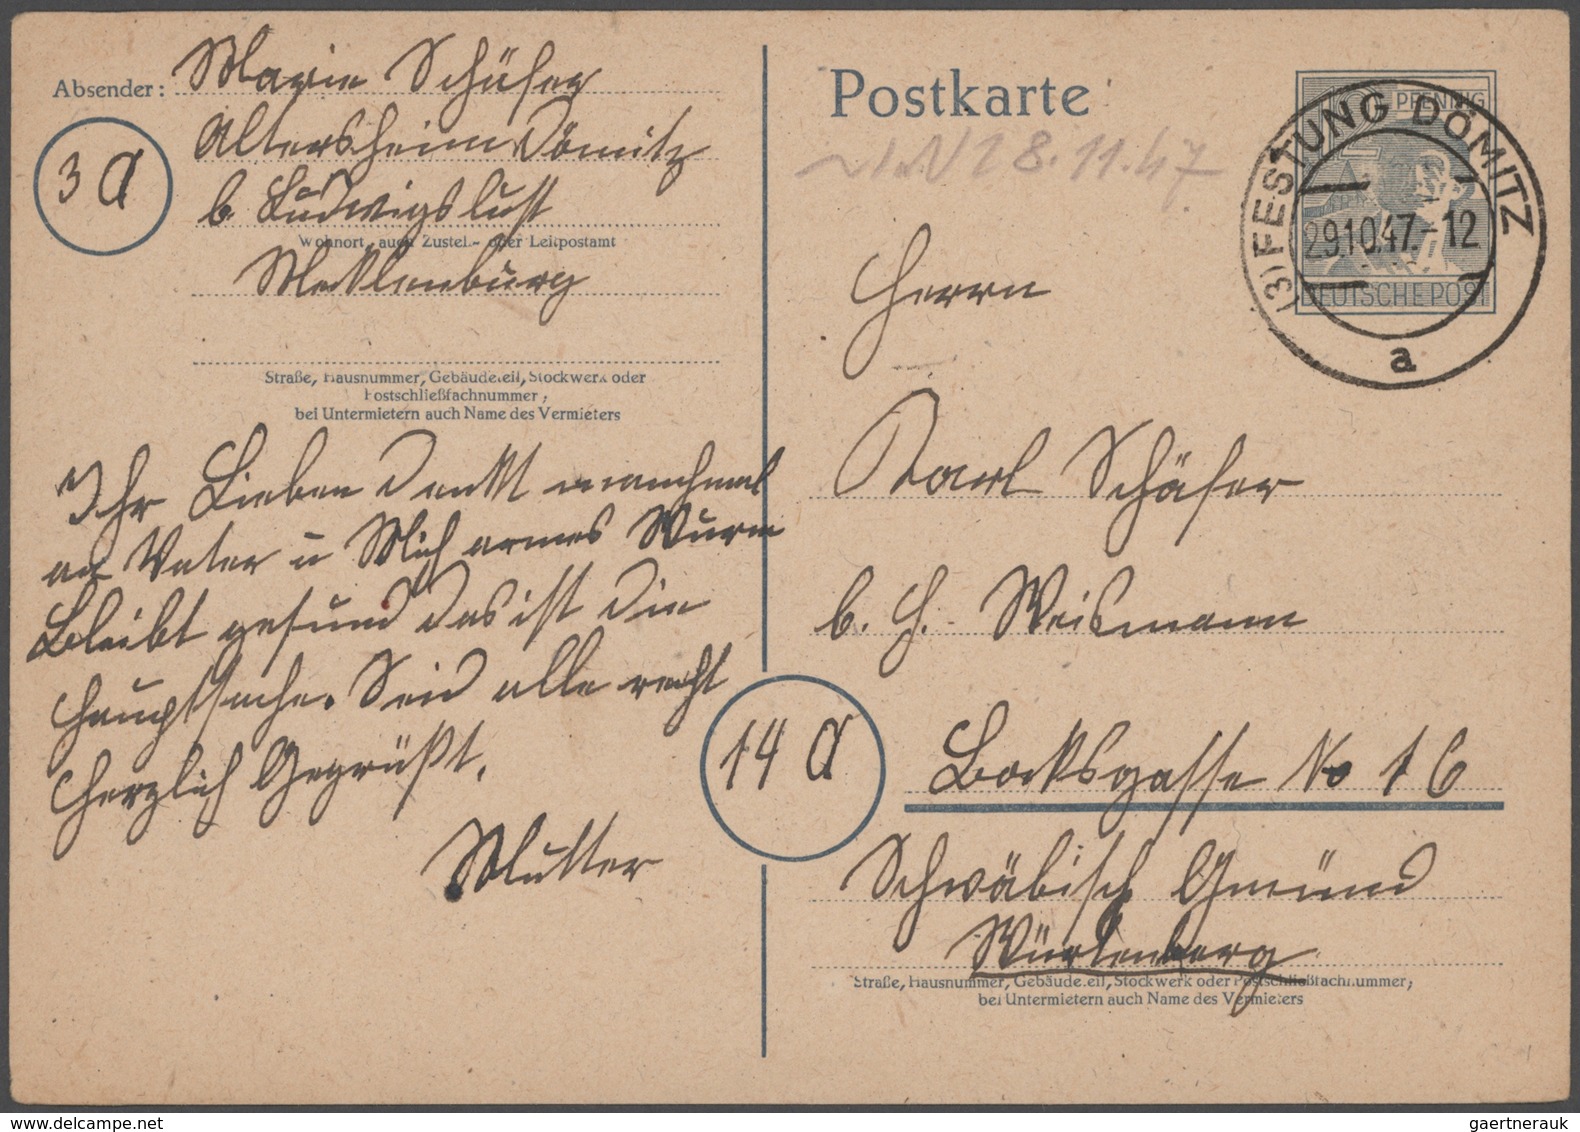 Absender: Marie Schäfer
Altersheim Dömitz
b. Ludwigslust
Wohnort, auch Zustell- oder Leitpostamt
Mecklenburg
3a
Straße, Hausnummer, Gebäudeteil, Stockwerk oder
Postschließfachnummer;
bei Untermietern auch Name des Vermieters
Ihr Lieben Denkt manchmal
an Vater u Mich armes Wurm
Bleibt gesund das ist die
Hauptsache. Seid alle recht
Herzlich Gegrüßt.
Mutter
Postkarte
28.11.47
PFENNIG
DEUTSCHE POST
(3) FESTUNG DÖMITZ
29.10.47.-12
a
Herrn
Karl Schäfer
b. H. Weismann
14a
Bocksgasse No 16
Schwäbisch Gmünd
Würtenberg
Straße, Hausnummer, Gebäudeteil, Stockwerk oder Postschließfachnummer;
bei Untermietern auch Name des Vermieters
gaertnerauk